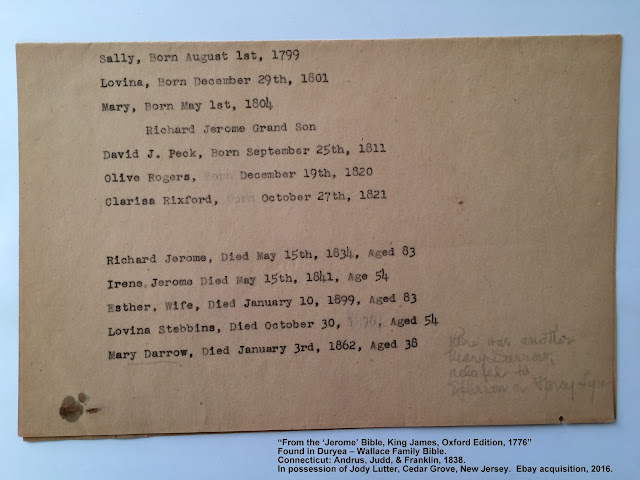 Sally, Born August 1st, 1799
Lovina, Born December 29th, 1801
Mary, Born May 1st, 1804
Richard Jerome Grand Son
David J. Peck, Born September 25th, 1811
Olive Rogers, Born December 19th, 1820
Clarisa Rixford, Born October 27th, 1821
Richard Jerome, Died May 15th, 1834, Aged 83
Irene, Jerome Died May 15th, 1841, Age 54
Esther, Wife, Died January 10, 1899, Aged 83
Lovina Stebbins, Died October 30, Aged 54
Mary Darrow, Died January 3rd, 1862, Aged 38
was another
Mary Darrow,
related to
"From the 'Jerome' Bible, King James, Oxford Edition, 1776"
Found in Duryea – Wallace Family Bible.
Connecticut: Andrus, Judd, & Franklin, 1838.
In possession of Jody Lutter, Cedar Grove, New Jersey. Ebay acquisition, 2016.